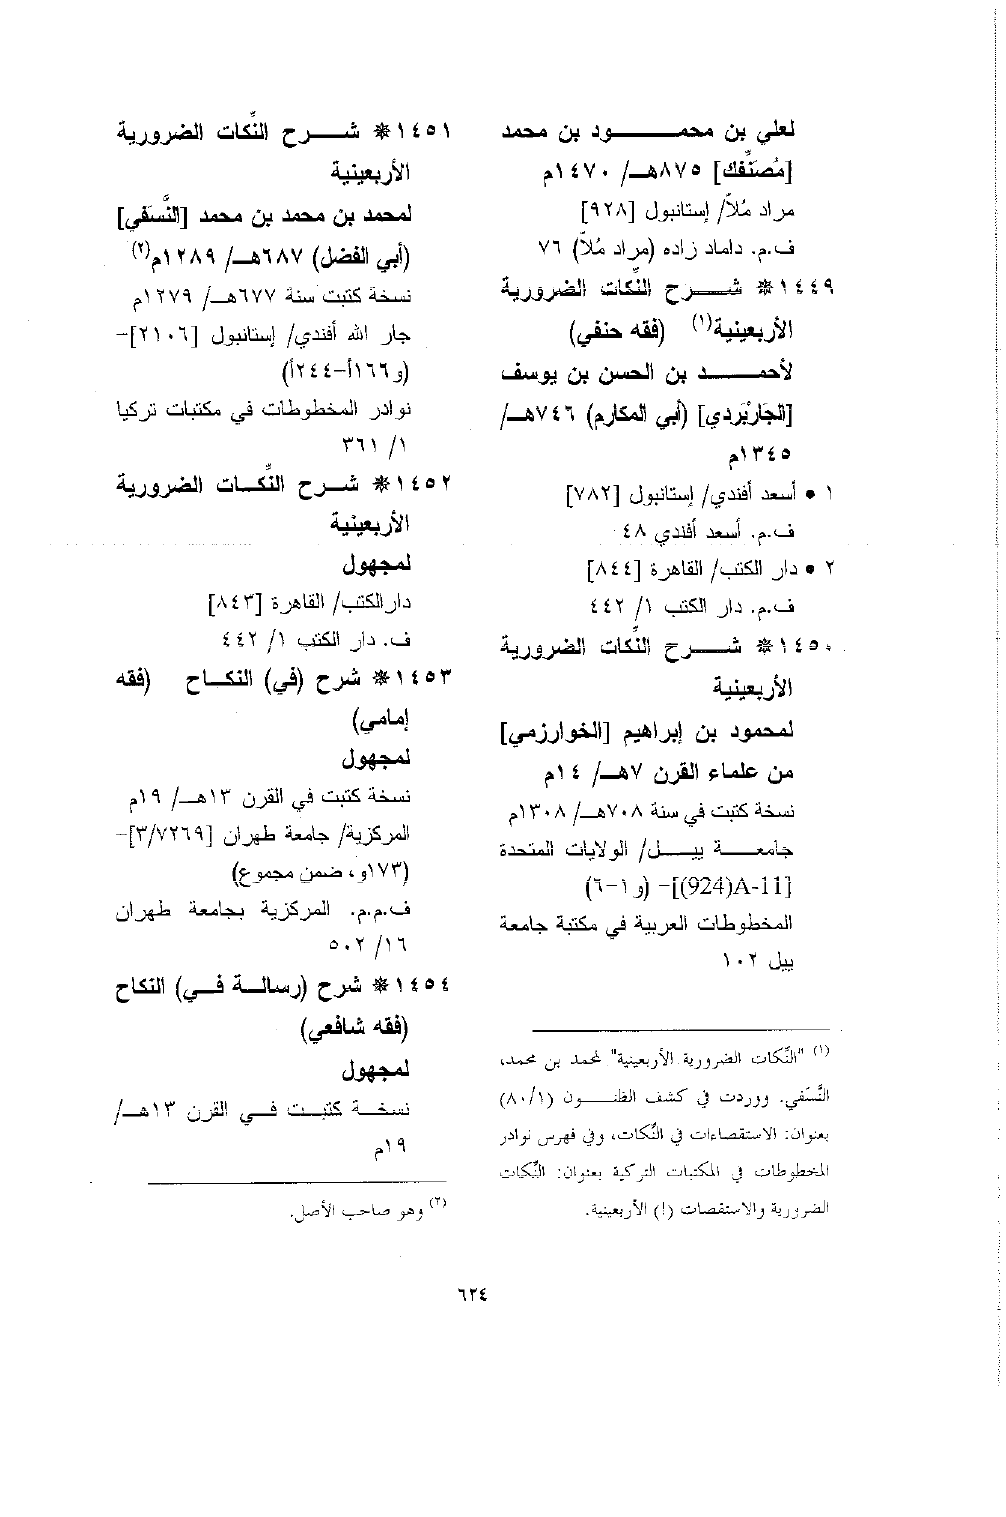 لعلي بن محمود بن محمد
[مُصَنِّفك] ٨٧٥هـ/ ١٤٧٠م
مراد مُلاّ/ إستانبول [٩٢٨]
ف.م. داماد زاده (مراد مُلاّ) ٧٦
١٤٤٩* شرح النِّكات الضرورية
الأربعينية(١) (فقه حنفي)
لأحمد بن الحسن بن يوسف
[الجَارْبَردي] (أبي المكارم) ٧٤٦هـ/
١٣٤٥م
١ • أسعد أفندي/ إستانبول [٧٨٢]
ف.م. أسعد أفندي ٤٨
٢ • دار الكتب/ القاهرة [٨٤٤]
ف.م. دار الكتب ١/ ٤٤٢
١٤٥٠* شرح النِّكات الضرورية
الأربعينية
لمحمود بن إبراهيم [الخوارزمي]
من علماء القرن ٧هـ/ ١٤م
نسخة كتبت في سنة ٧٠٨هـ/ ١٣٠٨م
جامعة ييل/ الولايات المتحدة
[(924)A-11]- (و١-٦)
المخطوطات العربية في مكتبة جامعة
ييل ١٠٢
(١) "النِّكات الضرورية الأربعينية" لمحمد بن محمد،
النَّسَفي. ووردت في كشف الظنون (٨٠/١)
بعنوان: الاستقصاءات في النِّكات، وفي فهرس نوادر
المخطوطات في المكتبات التركية بعنوان: النِّكات
الضرورية والاستقصات (!) الأربعينية.
١٤٥١* شرح النِّكات الضرورية
الأربعينية
لمحمد بن محمد بن محمد [النَّسَفي]
(أبي الفضل) ٦٨٧هـ/ ١٢٨٩م(٢)
نسخة كتبت سنة ٦٧٧هـ/ ١٢٧٩م
جار الله أفندي/ إستانبول [٢١٠٦]-
(و١٦٦أ-٢٤٤أ)
نوادر المخطوطات في مكتبات تركيا
١/ ٣٦١
١٤٥٢* شرح النِّكات الضرورية
الأربعينية
لمجهول
دارالكتب/ القاهرة [٨٤٣]
ف. دار الكتب ١/ ٤٤٢
١٤٥٣* شرح (في) النكاح (فقه
إمامي)
لمجهول
نسخة كتبت في القرن ١٣هـ/ ١٩م
المركزية/ جامعة طهران [٣/٧٢٦٩]-
(١٧٣و، ضمن مجموع)
ف.م.م. المركزية بجامعة طهران
١٦/ ٥٠٢
١٤٥٤* شرح (رسالة في) النكاح
(فقه شافعي)
لمجهول
نسخة كتبت في القرن ١٣هـ/
١٩م
(٢) وهو صاحب الأصل.
٦٢٤